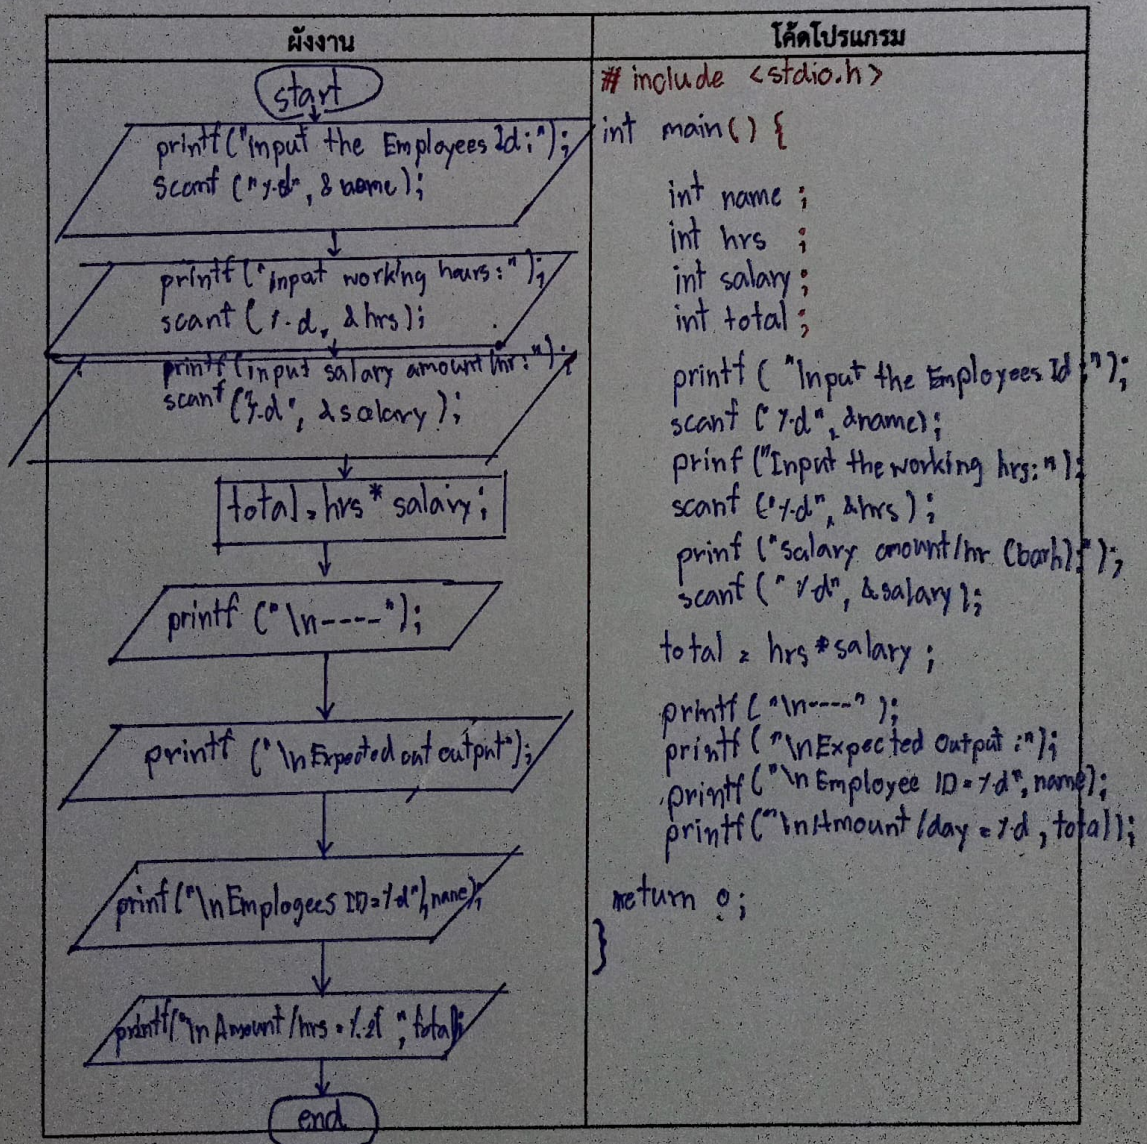 ผังงาน
start
printf("Input the Employees Id:");
scanf ("%d", &name);
printf("Input working hours:");
scanf (%d, &hrs);
printf(input salary amount/hr:");
scanf("%d", &salary);
total = hrs* salary;
printf ("\n----");
printf ("\nExpected out output");
printf("\nEmployees ID=%d", name);
printf("\n Amount/hrs =
total);
end
โค้ดโปรแกรม
# include <stdio.h>
int main() {
int name ;
int hrs ;
int salary;
int total;
printf ( "Input the Employees Id :");
scanf ("%d", &name);
prinf ("Input the working hrs:");
scanf ("%d", &hrs);
prinf ("salary amount/hr (barh):");
scanf (" %d", &salary);
total = hrs *salary ;
printf ( "\n----" );
printf ("\nExpected Output :");
printf("\n Employee ID=%d", name);
printf("\nAmount/day =%d, total);
return 0;
}